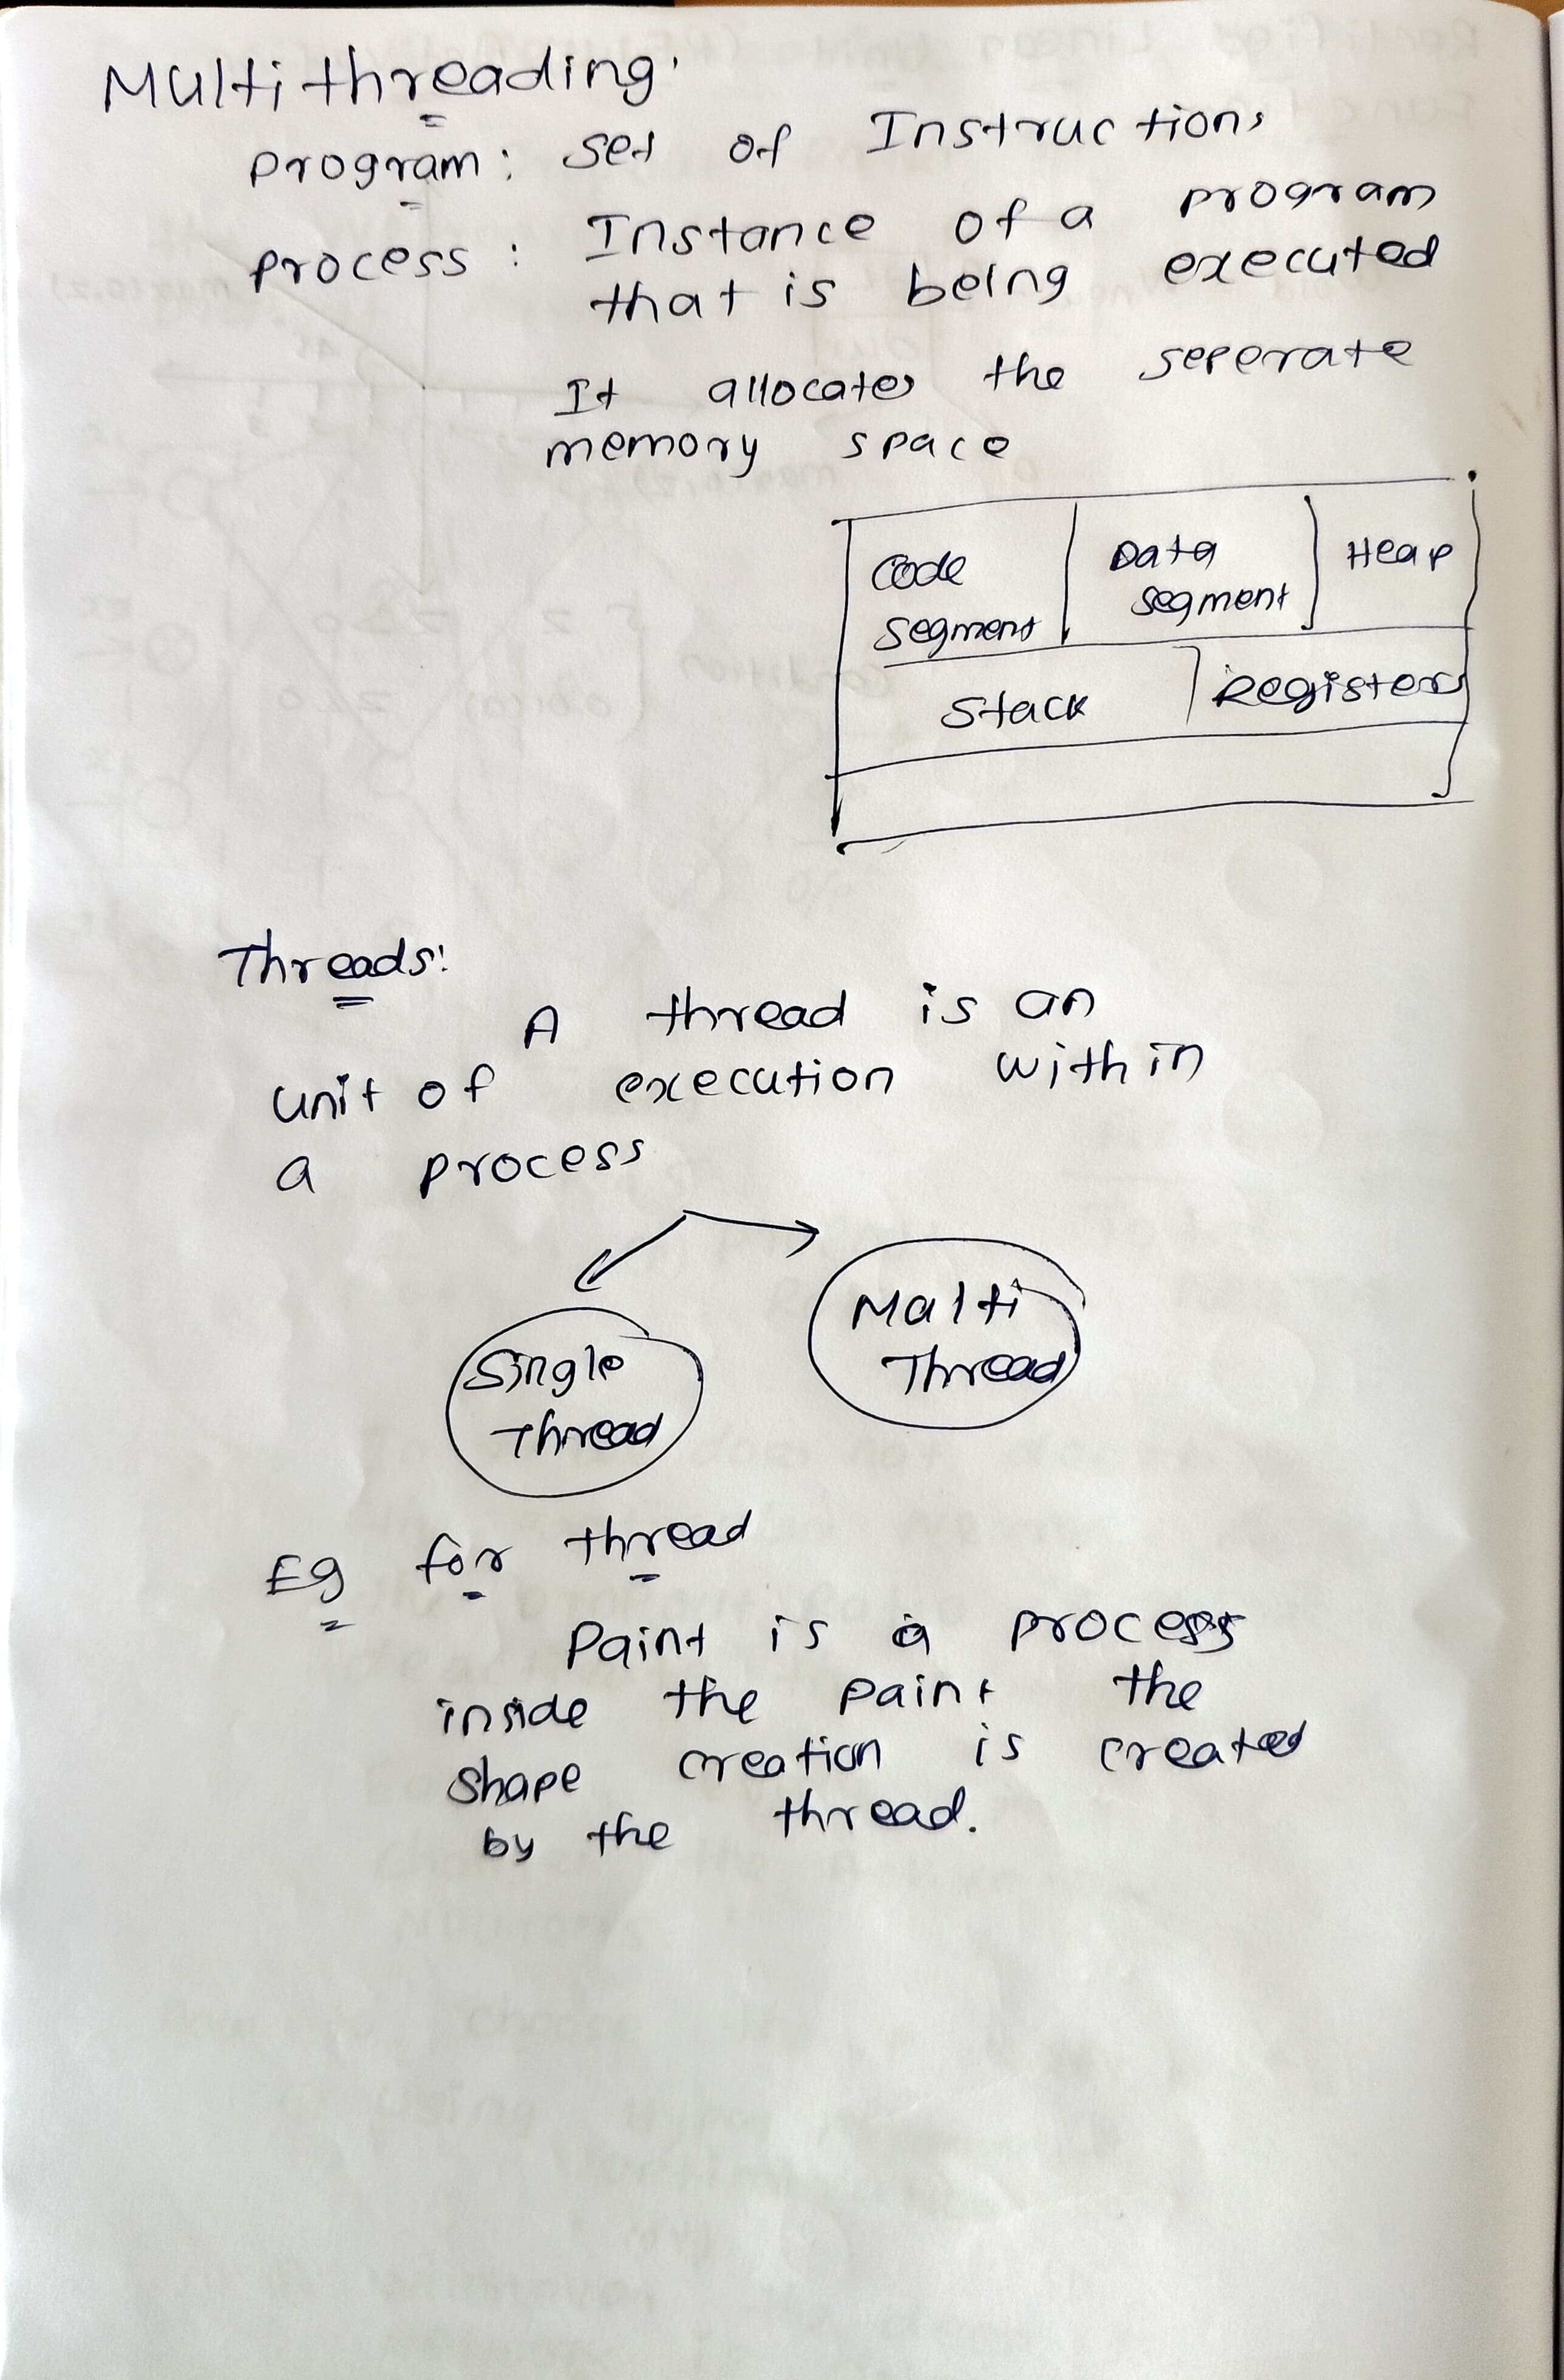 Multithreading:
Program: Set of Instructions
Process: Instance of a program
that is being executed
It allocates the seperate
memory space
Code Segment Data Segment Heap
Stack Registers
Threads:
A thread is an
unit of execution within
a process
Single Thread
Multi Thread
Eg for thread
Paint is a process
inside the paint the
shape creation is created
by the thread.